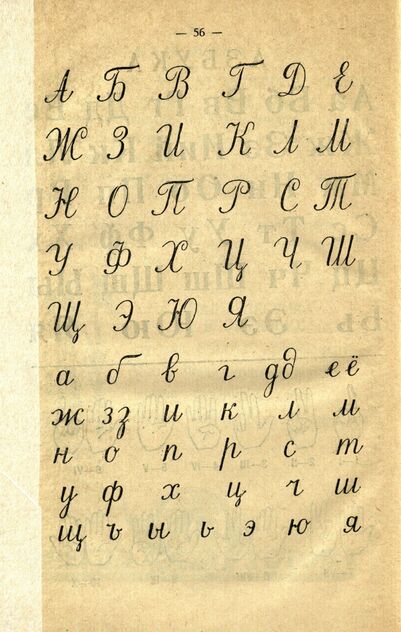 — 56 —
А Б В Г Д Е
Ж З И К Л М
Н О П Р С Т
У Ф Х Ц Ч Ш
Щ Э Ю Я
а б в г д д е ё
ж з з и к л м
н о п р с т
у ф х ц ч ш
щ ъ ы ь э ю я